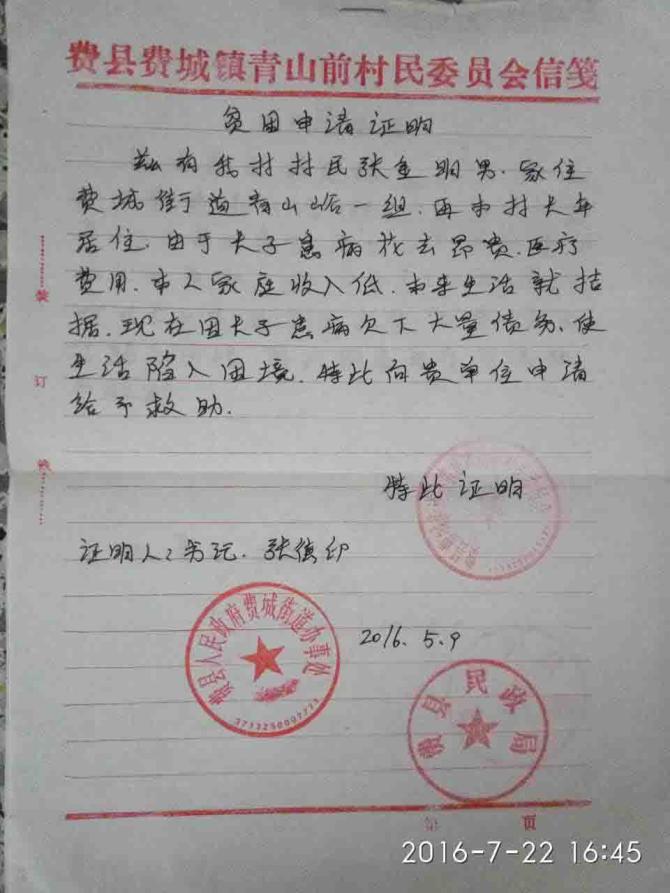 费县费城镇青山前村民委员会信笺
贫困申请证明
兹有我村村民张金明男.家住
费城街道青山峪一组.再本村长年
居住.由于夫子患病花去昂贵.医疗
费用.本人家庭收入低.本来生活就拮
据.现在因夫子患病欠下大量债务.使
生活陷入困境.特此向贵单位申请
给予救助.
特此证明
证明人:书记.张德印
费县人民政府费城街道办事处
2016.5.9
费县民政局
装
订
线
页
2016-7-22 16:45